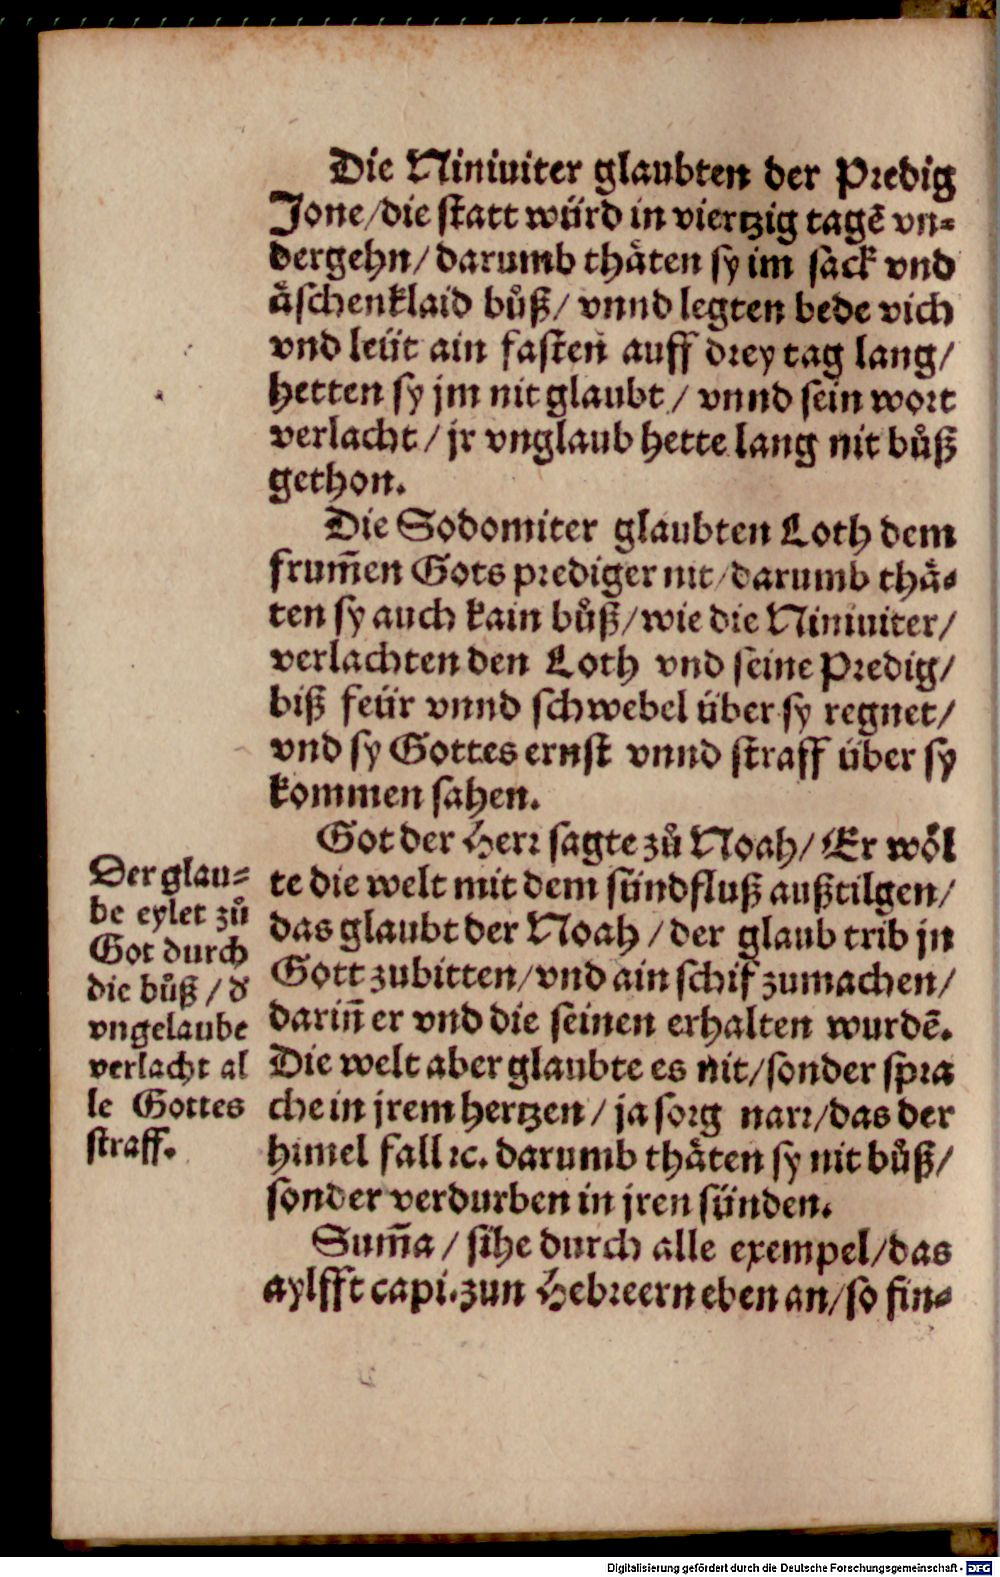 Die Niniuiter glaubten der Predig
Jone/die statt würd in viertzig tagē vn⸗
dergehn/ darumb thäten sy im sack vnd
äschenklaid bůß/ vnnd legten bede vich
vnd leüt ain fasten auff drey tag lang/
hetten sy jm nit glaubt / vnnd sein wort
verlacht / jr vnglaub hette lang nit bůß
gethon.
Die Sodomiter glaubten Loth dem
frum̄en Gots prediger nit/darumb thä⸗
ten sy auch kain bůß/wie die Niniuiter/
verlachten den Loth vnd seine Predig/
biß feür vnnd schwebel über sy regnet/
vnd sy Gottes ernst vnnd straff über sy
kommen sahen.
Got der Herr sagte zů Noah/ Er wöl
te die welt mit dem sündfluß außtilgen/
das glaubt der Noah / der glaub trib jn
Gott zubitten/vnd ain schif zumachen/
darin̄ er vnd die seinen erhalten wurdē.
Die welt aber glaubte es nit/sonder spra
che in jrem hertzen / ja sorg narr/das der
himel fall ꝛc. darumb thäten sy nit bůß/
sonder verdurben in jren sünden.
Sum̄a / sihe durch alle exempel/das
aylfft capi. zun Hebreern eben an/so fin⸗
Der glau⸗
be eylet zů
Got durch
die bůß / d̓
vngelaube
verlacht al
le Gottes
straff.
Digitalisierung gefördert durch die Deutsche Forschungsgemeinschaft - DFG